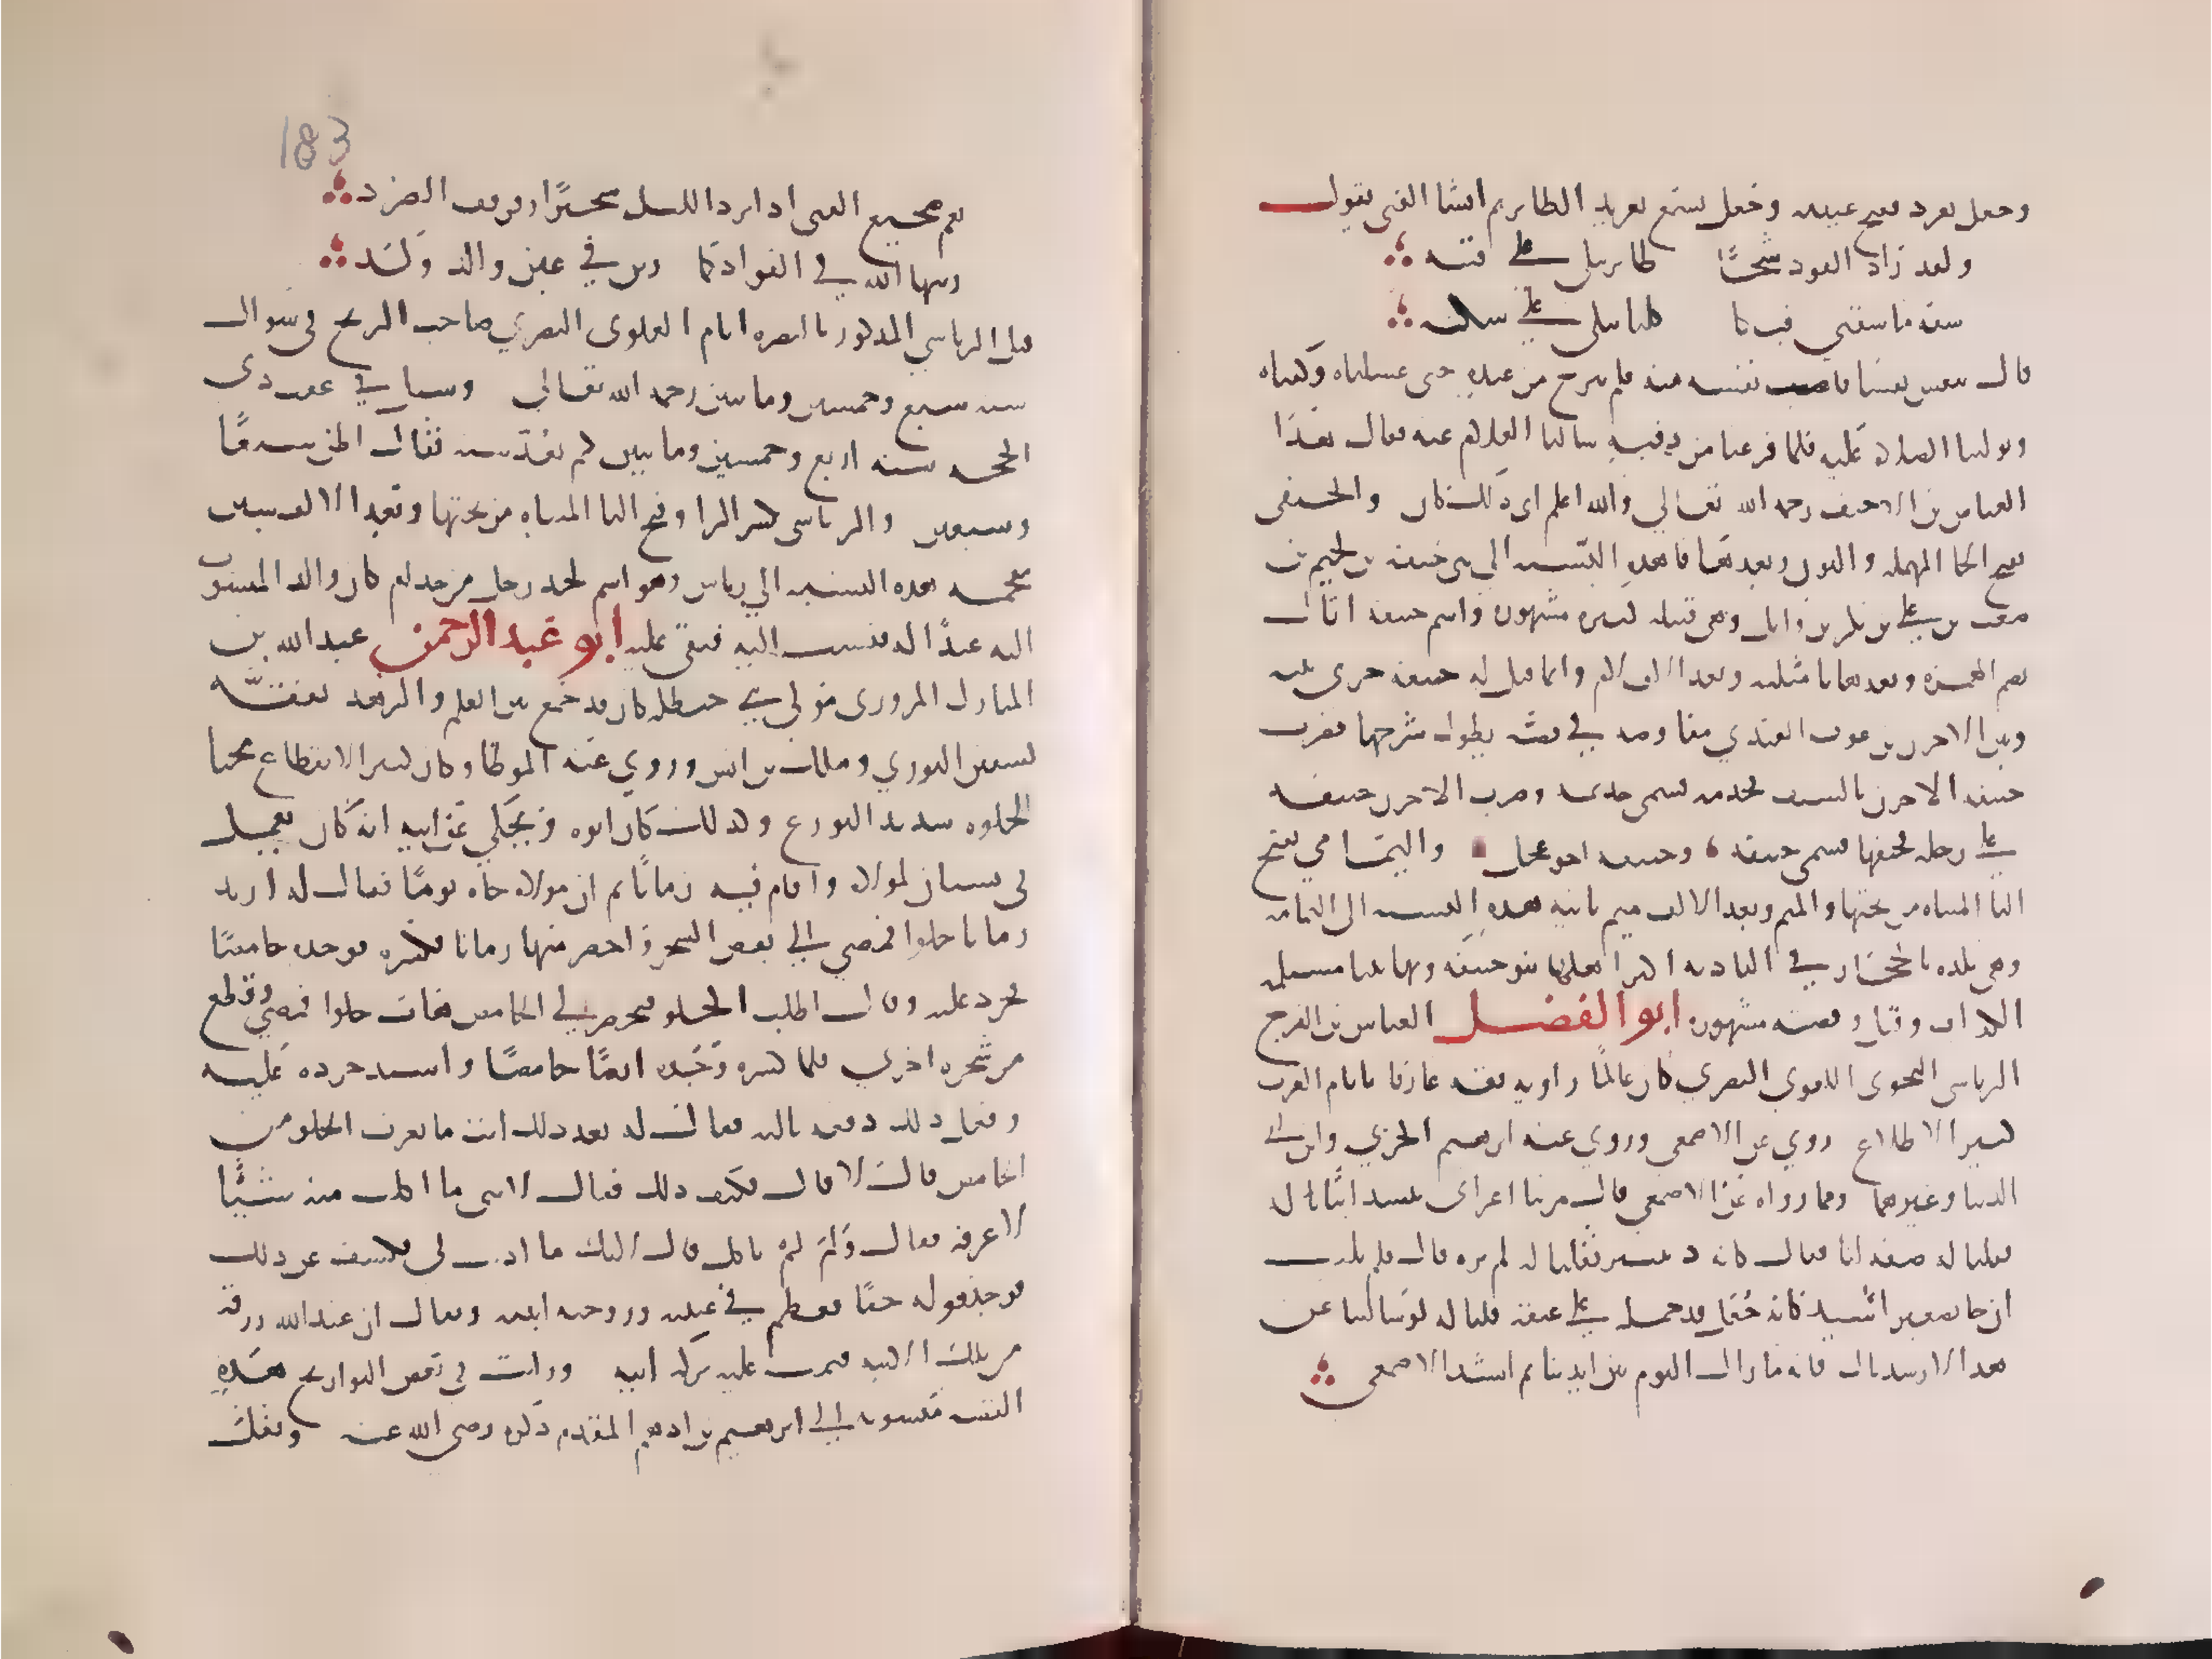 وجعل يغرد ففتح عينيه وجعل يسمع تغريد الطاير ثم انشا الفتى يقول
ولقد زاد الفواد شجًا طاير يبكي على فننه
شفه ما شفني فبكا كلنا يبكي على سكنه
قال ثم تنفس تنفسا فاضت نفسه منه فلم نبرح من عنده حتى غسلناه وكفناه
وتولينا الصلاة عليه فلما فرغنا من دفنه سالنا الغلام عنه فقال هذا
العباس بن الاحنف رحمه الله تعالي والله اعلم اي ذلك كان والحنفي
بفتح الحا المهملة والنون وبعدها فا هذه النسبة الي بني حنيفة بن لجيم بن
صعب بن علي بن بكر بن وايل وهي قبيلة كبيرة مشهورة واسم حنيفة اثال
بضم الهمزة وبعدها ثا مثلثه وبعد الالف لام وانما قيل له حنيفة جرى بينه
وبين الاحزن بن عوف العبدي مفاوضة في قصة يطول شرحها فضرب
حنيفه الاحزن بالسيف فجذمه فسمى جذيمة وضرب الاحزن حنيفة
على رجله فحنفها فسمى حنيفه وحنيفه اخو عجل واليمامي بفتح
اليا المثناه من تحتها والميم وبعد الالف ميم ثانيه هذه النسبه الى اليمامه
وهي بلده بالحجاز في الباديه اكثر اهلها بنو حنيفه وبها تنبا مسيلمه
الكذاب وقتل وقصته مشهوره ابو الفضل العباس بن الفرج
الرياشي النحوى اللغوي البصري كان عالمًا راويه ثقه عارفا بايام العرب
كثير الاطلاع روي عن الاصمعي وروي عنه ابرهيم الحربي وابن ابي
الدنيا وغيرهما ومما رواه عن الاصمعي قال مر بنا اعرابي ينشد ابنًا له
فقلنا له صفه لنا فقال كانه دنينير فقلنا له لم نره قال فلم يلبث
ان جا بصغير اسيد كانه جُعَل قد حمله على عنقه فقلنا له لو سالتنا عن
هذا لارشدناك فانه ما زال اليوم بين ايدينا ثم انشد الاصمعي
183
نعم ضجيع الفتى اذا برد الليل سحيرًا وقرقف الصرد
زينها الله في الفواد كما زين في عين والد ولد
قتل الرياشي المذكور بالبصره ايام العلوي البصري صاحب الزنج في شوال
سنه سبع وخمسين وماتين رحمه الله تعالي وسيل في عقب ذي
الحجه سنه اربع وخمسين وماتين كم تعد سنه فقال اظن سبعًا
وسبعين والرياشي بكسر الرا وفتح اليا المثناه من تحتها وبعد الالف شين
معجمه هذه النسبه الي رياش وهو اسم لجد رجل من جذام كان والد المنسوب
اليه عبدًا له فنسب اليه فبقي عليه ابو عبد الرحمن عبد الله بن
المبارك المروزي مولي بني حنظله كان قد جمع بين العلم والزهد تفقه
لسفين الثوري وملك بن انس وروي عنه الموطا وكان كثير الانقطاع محبا
للخلوه شديد التورع وكذلك كان ابوه ويحكي عن ابيه انه كان يعمل
في بستان لمولاه واقام فيه زمانًا ثم ان مولاه جاه يومًا فقال له اريد
رمانا حلوا فمضي الي بعض الشجر واحضر منها رمانا فكسره فوجده حامضًا
فحرد عليه وقال اطلب الحلو فتحضر لي الحامض هات حلوا فمضي وقطع
من شجره اخري فلما كسره وجده ايضًا حامضًا واشتد حرده عليه
وفعل ذلك دفعه ثالثه فقال له بعد ذلك انت ما تعرف الحلو من
الحامض قال لا قال وكيف ذلك فقال لاني ما اكلت منه شيئًا
لاعرفه فقال ولم لم تاكل قال لانك ما اذنت لي فكشف عن ذلك
فوجد قوله حقًا فعظم في عينه وزوجه ابنته ويقال ان عبد الله رزقه
من تلك الابنه فنمت عليه بركه ابيه ورايت في بعض التواريخ هذه
القصه منسوبه الي ابرهيم بن ادهم المتقدم ذكره رضي الله عنه ونقلت